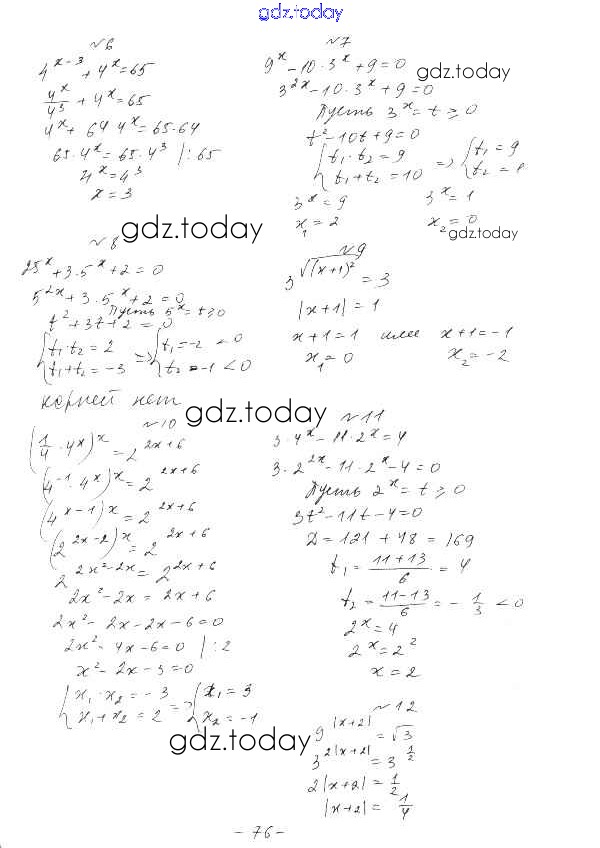 gdz.today
№6
4^{x-3} + 4^x = 65
4^x/4^3 + 4^x = 65
4^x + 64 4^x = 65·64
65·4^x = 65·4^3 |:65
4^x = 4^3
x = 3
№7
9^x - 10·3^x + 9 = 0
gdz.today
3^{2x} - 10·3^x + 9 = 0
Пусть 3^x = t ≥ 0
t^2 - 10t + 9 = 0
{t_1·t_2 = 9 => {t_1 = 9
{t_1 + t_2 = 10 {t_2 = 1
3^x = 9 3^x = 1
x_1 = 2 x_2 = 0
gdz.today
gdz.today
№8
25^x + 3·5^x + 2 = 0
5^{2x} + 3·5^x + 2 = 0
Пусть 5^x = t ≥ 0
t^2 + 3t + 2 = 0
{t_1 t_2 = 2 => {t_1 = -2 < 0
{t_1 + t_2 = -3 {t_2 = -1 < 0
корней нет
№9
3^{√(x+1)^2} = 3
|x+1| = 1
x+1 = 1 или x+1 = -1
x_1 = 0 x_2 = -2
gdz.today
№10
(1/4 · 4^x)^x = 2^{2x+6}
(4^{-1} · 4^x)^x = 2^{2x+6}
(4^{x-1})^x = 2^{2x+6}
(2^{2x-2})^x = 2^{2x+6}
2^{2x^2-2x} = 2^{2x+6}
2x^2 - 2x = 2x + 6
2x^2 - 2x - 2x - 6 = 0
2x^2 - 4x - 6 = 0 |:2
x^2 - 2x - 3 = 0
{x_1·x_2 = -3 => {x_1 = 3
{x_1 + x_2 = 2 {x_2 = -1
№11
3·4^x - 11·2^x = 4
3·2^{2x} - 11·2^x - 4 = 0
Пусть 2^x = t ≥ 0
3t^2 - 11t - 4 = 0
D = 121 + 48 = 169
t_1 = (11+13)/6 = 4
t_2 = (11-13)/6 = -1/3 < 0
2^x = 4
2^x = 2^2
x = 2
gdz.today
№12
9^{|x+2|} = √3
3^{2|x+2|} = 3^{1/2}
2|x+2| = 1/2
|x+2| = 1/4
- 76 -